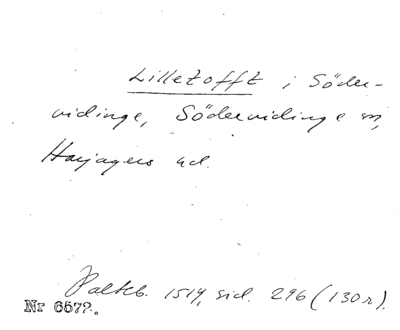 Lilletofft i Söder-
vidinge, Södervidinge sn,
Harjagers hd.
Palteb. 1514, sid. 296 (130 r).
Nr 6572.